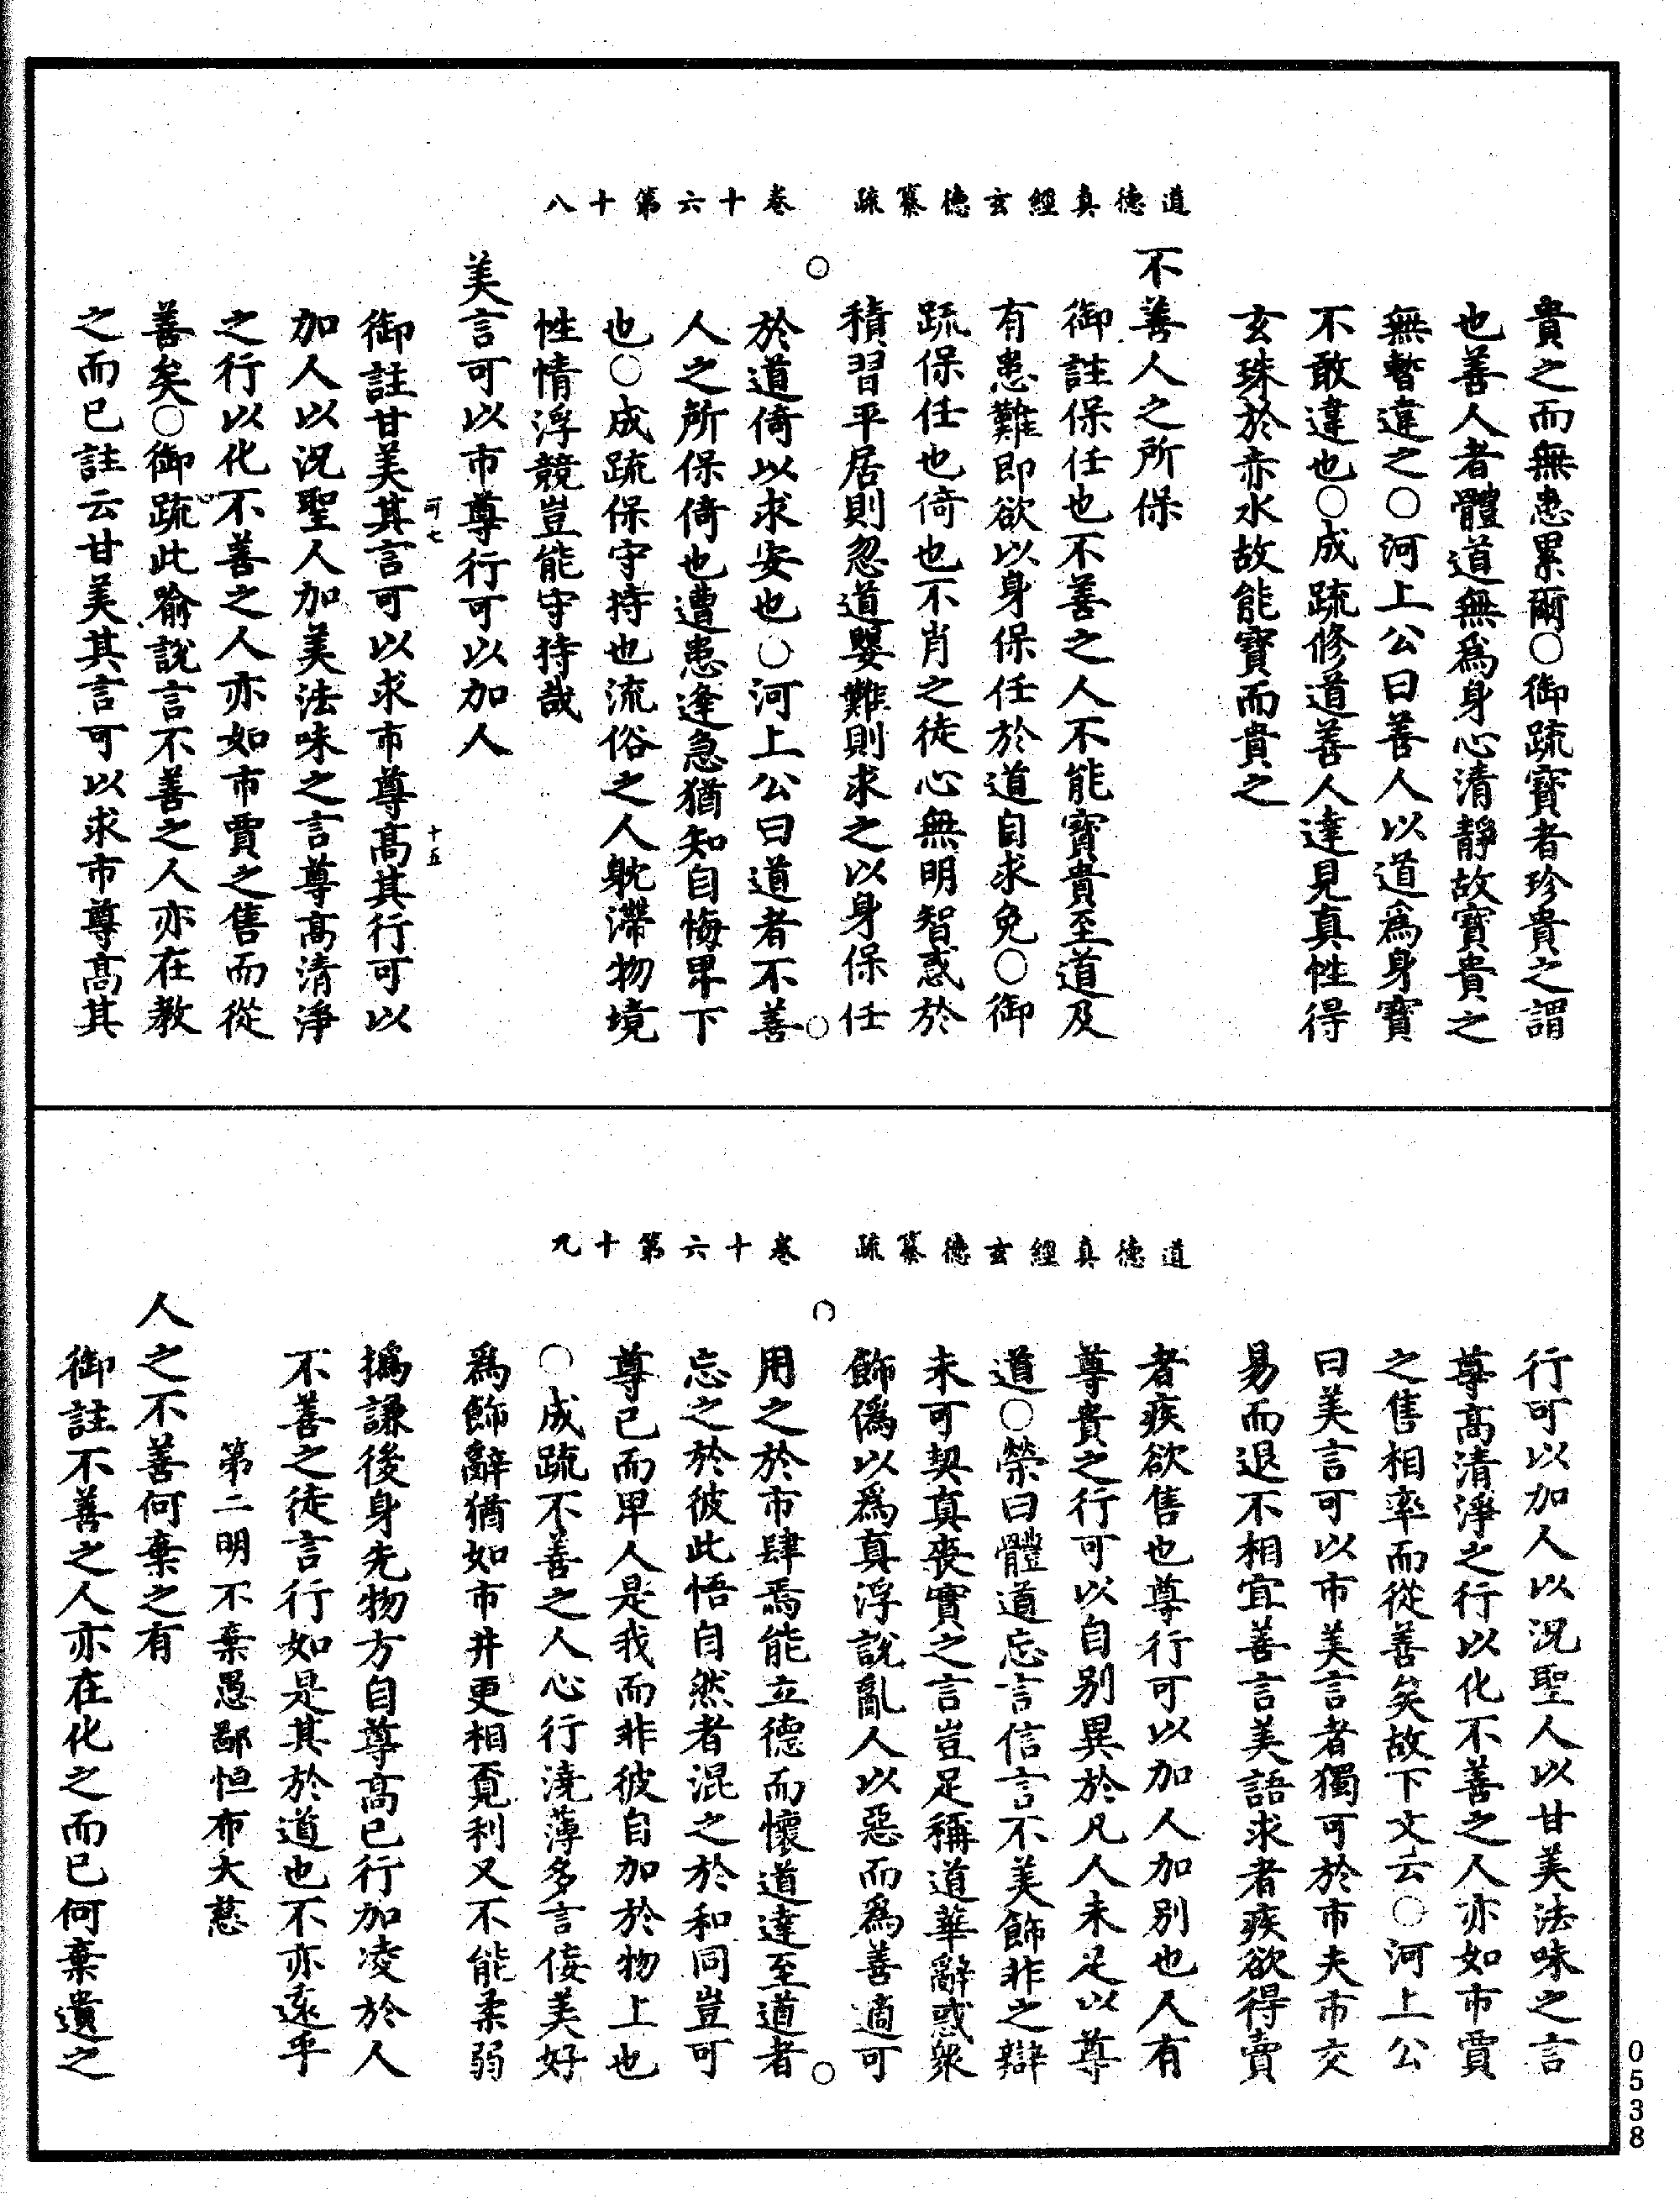 道德真經玄德纂疏　卷十六第十八
貴之而無患累爾○御疏寶者珍貴之謂
也善人者體道無爲身心清靜故寶貴之
無暫違之○河上公曰善人以道爲身寶
不敢違也○成疏修道善人達見真性得
玄珠於赤水故能寶而貴之
不善人之所保
御註保任也不善之人不能寶貴至道及
有患難即欲以身保任於道自求免○御
疏保任也倚也不肖之徒心無明智惑於
積習平居則忽道嬰難則求之以身保任
於道倚以求安也○河上公曰道者不善
人之所保倚也遭患逢急猶知自悔卑下
也○成疏保守持也流俗之人躭滯物境
性情浮競豈能守持哉
美言可以市尊行可以加人
可七
十五
御註甘美其言可以求市尊高其行可以
加人以況聖人加美法味之言尊高清淨
之行以化不善之人亦如市賈之售而從
善矣○御疏此喻說言不善之人亦在教
之而已註云甘美其言可以求市尊高其
道德真經玄德纂疏　卷十六第十九
行可以加人以況聖人以甘美法味之言
尊高清淨之行以化不善之人亦如市賈
之售相率而從善矣故下文云○河上公
曰美言可以市美言者獨可於市夫市交
易而退不相宜善言美語求者疾欲得賣
者疾欲售也尊行可以加人加別也人有
尊貴之行可以自別異於凡人未足以尊
道○榮曰體道忘言信言不美飾非之辯
未可契真喪實之言豈足稱道華辭惑衆
飾僞以爲真浮說亂人以惡而爲善適可
用之於市肆焉能立德而懷道達至道者
忘之於彼此悟自然者混之於和同豈可
尊己而卑人是我而非彼自加於物上也
○成疏不善之人心行澆薄多言佞美好
爲飾辭猶如市井更相覓利又不能柔弱
撝謙後身先物方自尊高己行加凌於人
不善之徒言行如是其於道也不亦遠乎
第二明不棄愚鄙恒布大慈
人之不善何棄之有
御註不善之人亦在化之而已何棄遺之
0538